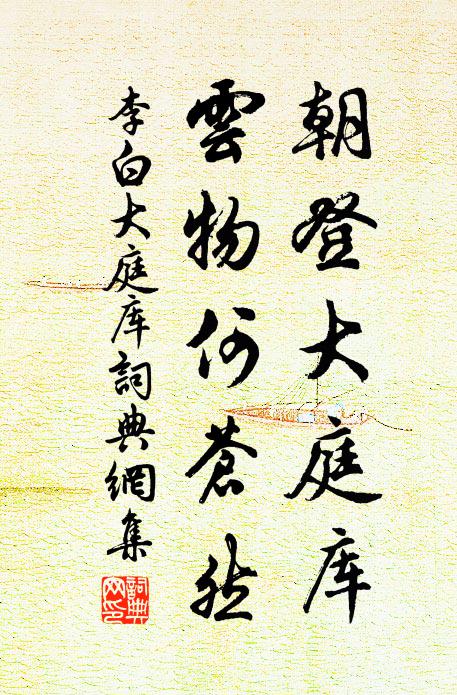 朝登大庭库
雲物何蒼然
李白大庭库詞典網集
詞典
网印